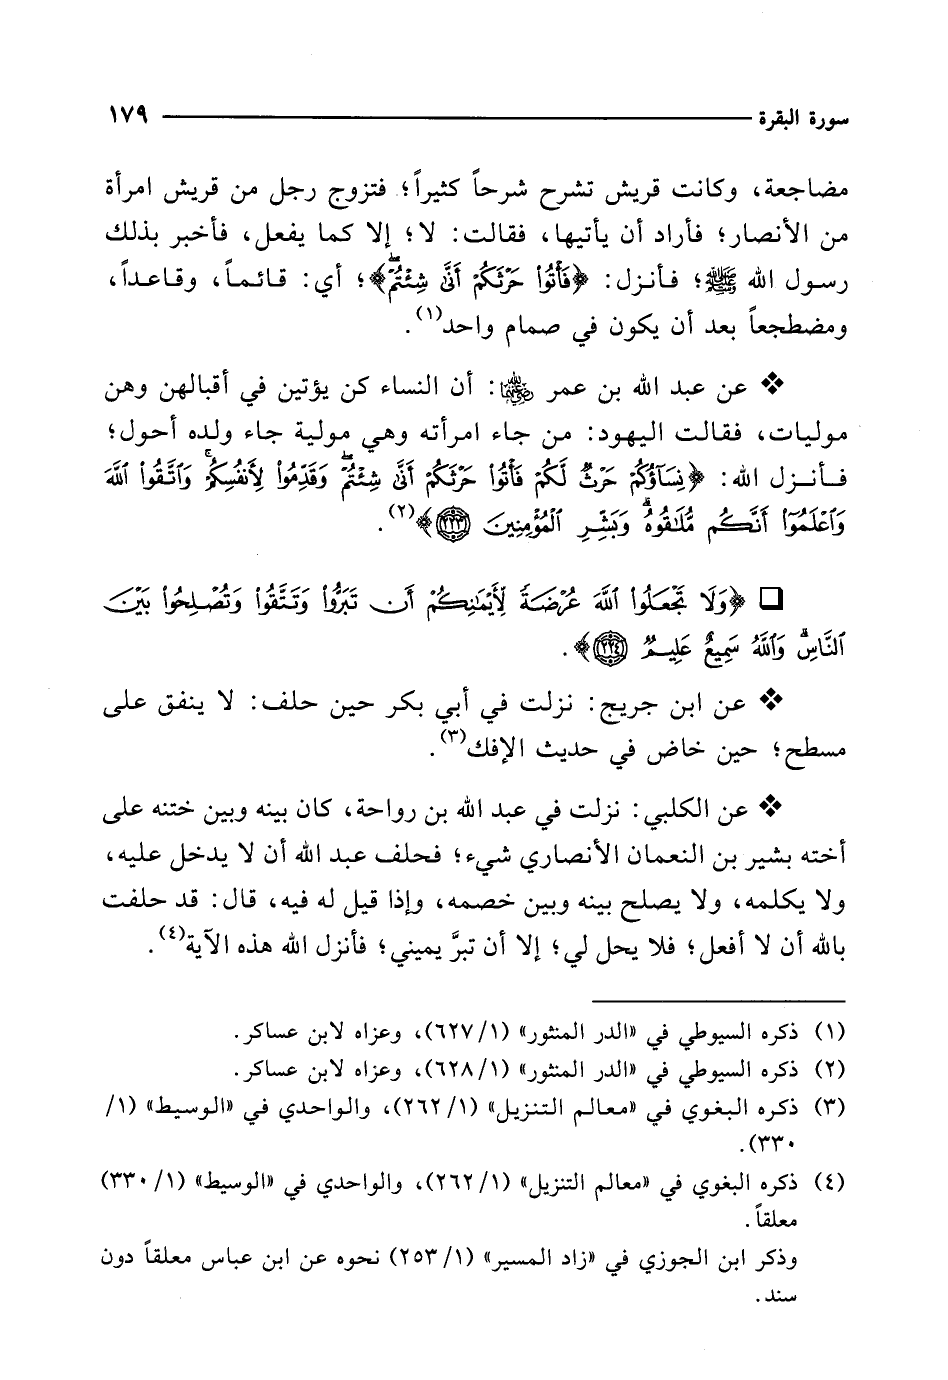 سورة البقرة ١٧٩
مضاجعة، وكانت قريش تشرح شرحاً كثيراً؛ فتزوج رجل من قريش امرأة
من الأنصار؛ فأراد أن يأتيها، فقالت: لا؛ إلا كما يفعل، فأخبر بذلك
رسول الله ﷺ؛ فأنزل: ﴿فَأْتُوا۟ حَرْثَكُمْ أَنَّىٰ شِئْتُمْ ۖ﴾؛ أي: قائماً، وقاعداً،
ومضطجعاً بعد أن يكون في صمام واحد(١).
❖ عن عبد الله بن عمر رضي الله عنهما: أن النساء كن يؤتين في أقبالهن وهن
موليات، فقالت اليهود: من جاء امرأته وهي مولية جاء ولده أحول؛
فأنزل الله: ﴿نِسَآؤُكُمْ حَرْثٌ لَّكُمْ فَأْتُوا۟ حَرْثَكُمْ أَنَّىٰ شِئْتُمْ ۖ وَقَدِّمُوا۟ لِأَنفُسِكُمْ ۚ وَٱتَّقُوا۟ ٱللَّهَ
وَٱعْلَمُوٓا۟ أَنَّكُم مُّلَٰقُوهُ ۗ وَبَشِّرِ ٱلْمُؤْمِنِينَ ٢٢٣﴾(٢).
❑ ﴿وَلَا تَجْعَلُوا۟ ٱللَّهَ عُرْضَةً لِّأَيْمَٰنِكُمْ أَن تَبَرُّوا۟ وَتَتَّقُوا۟ وَتُصْلِحُوا۟ بَيْنَ
ٱلنَّاسِ ۗ وَٱللَّهُ سَمِيعٌ عَلِيمٌ ٢٢٤﴾.
❖ عن ابن جريج: نزلت في أبي بكر حين حلف: لا ينفق على
مسطح؛ حين خاض في حديث الإفك(٣).
❖ عن الكلبي: نزلت في عبد الله بن رواحة، كان بينه وبين ختنه على
أخته بشير بن النعمان الأنصاري شيء؛ فحلف عبد الله أن لا يدخل عليه،
ولا يكلمه، ولا يصلح بينه وبين خصمه، وإذا قيل له فيه، قال: قد حلفت
بالله أن لا أفعل؛ فلا يحل لي؛ إلا أن تبرَّ يميني؛ فأنزل الله هذه الآية(٤).
(١) ذكره السيوطي في «الدر المنثور» (١/ ٦٢٧)، وعزاه لابن عساكر.
(٢) ذكره السيوطي في «الدر المنثور» (١/ ٦٢٨)، وعزاه لابن عساكر.
(٣) ذكره البغوي في «معالم التنزيل» (١/ ٢٦٢)، والواحدي في «الوسيط» (١/
٣٣٠).
(٤) ذكره البغوي في «معالم التنزيل» (١/ ٢٦٢)، والواحدي في «الوسيط» (١/ ٣٣٠)
معلقاً.
وذكر ابن الجوزي في «زاد المسير» (١/ ٢٥٣) نحوه عن ابن عباس معلقاً دون
سند.